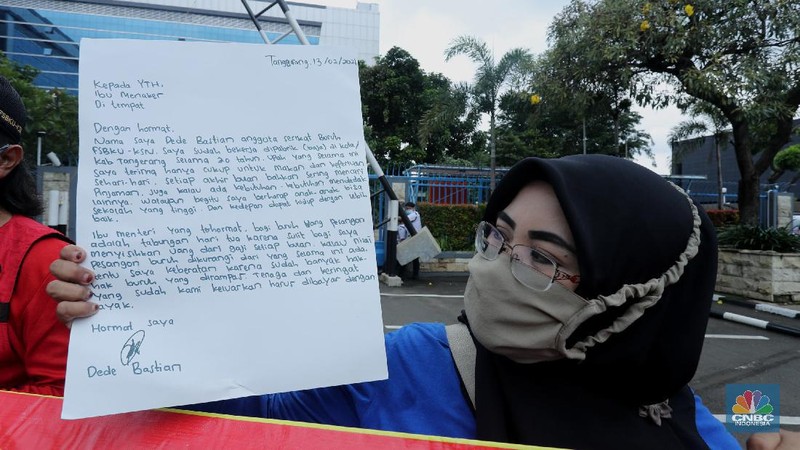 Tanggerang, 13/02/202
Kepada YTH.
Ibu Menaker
Di tempat
Dengan hormat.
Nama saya Dede Bastian anggota serikat Buruh
FSBKU-KSN. Saya sudah bekerja dipabrik (baja) di kota/
Kab Tangerang selama 20 tahun. Upah yang selama ini
saya terima hanya cukup untuk makan dan keperluan
sehari-hari. Setiap akhir bulan bahkan sering mencari
Pinjaman. Juga kalau ada kebutuhan-kebutuhan mendadak
lainnya. Walaupun begitu saya berharap anak-anak bisa
Sekolah yang tinggi. Dan kedepan dapat hidup dengan lebih
Baik.
Ibu menteri yang terhormat, bagi buruh uang pesangon
adalah tabungan hari tua karena sulit bagi saya
menyisihkan uang dari gaji setiap bulan. kalau nilai
pesangon buruh dikurangi dari yang selama ini ada.
tentu saya keberatan karena sudah banyak hak-
hak buruh yang dirampas. Tenaga dan keringat
yang sudah kami keluarkan harus dibayar dengan
layak.
Hormat saya
Dede Bastian
FSBKU-K
CNBC
INDONESIA